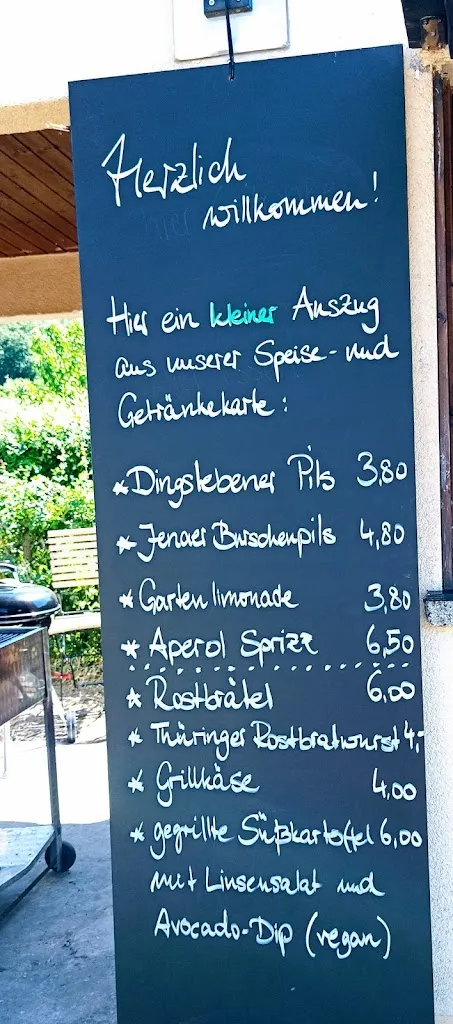 Herzlich
willkommen!
Hier ein kleiner Auszug
aus unserer Speise- und
Getränkekarte:
* Dingslebener Pils 3,80
* Jenaer Burschenpils 4,80
* Gartenlimonade 3,80
* Aperol Sprizz 6,50
* Rostbrätel 6,00
* Thüringer Rostbratwurst 4,-
* Grillkäse 4,00
* gegrillte Süßkartoffel 6,00
mit Linsensalat und
Avocado-Dip (vegan)